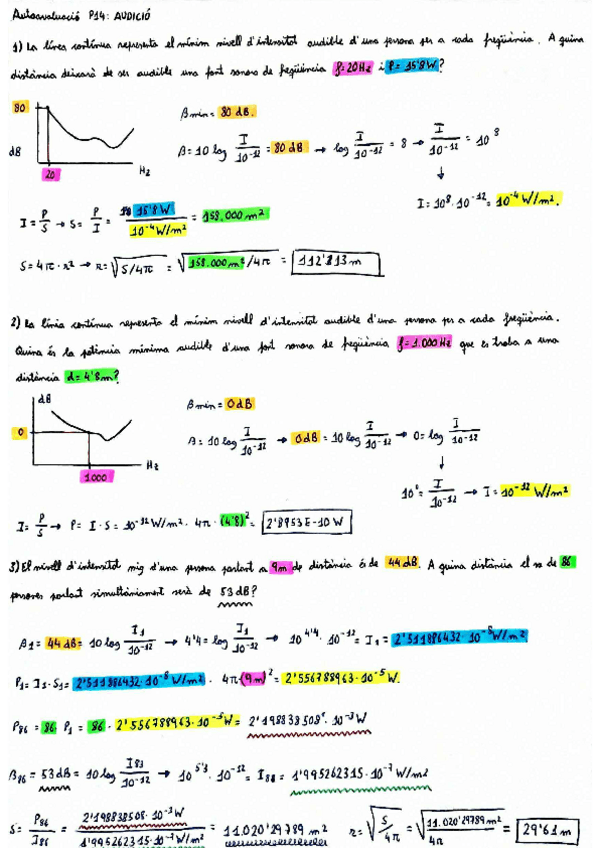 Autoavaluació P14: AUDICIÓ
1) La línea contínua representa el mínim nivell d'intensitat audible d'una persona per a cada freqüència. A quina
distància deixarà de ser audible una font sonora de freqüència f=20Hz i P=15'8W?
80
dB
20
Hz
βmin = 80 dB.
β=10 log I/10⁻¹² = 80 dB → log I/10⁻¹² = 8 → I/10⁻¹² = 10⁸
↓
I = 10⁸ · 10⁻¹² = 10⁻⁴ W/m².
I = P/S → S = P/I = 15'8 W/10⁻⁴ W/m² = 158.000 m²
S = 4π · r² → r = √S/4π = √158.000 m²/4π = 112'813 m
2) La línia contínua representa el mínim nivell d'intensitat audible d'una persona per a cada freqüència.
Quina és la potència mínima audible d'una font sonora de freqüència f=1.000Hz que es troba a una
distància d=4'8m?
dB
0
1000
Hz
βmin = 0dB
β = 10 log I/10⁻¹² → 0dB = 10 log I/10⁻¹² → 0 = log I/10⁻¹²
↓
10⁰ = I/10⁻¹² → I = 10⁻¹² W/m²
I = P/S → P = I · S = 10⁻¹² W/m² · 4π · (4'8)² = 2'8953E-10 W
3) El nivell d'intensitat mig d'una persona parlant a 9m de distància és de 44dB. A quina distància el so de 86
persones parlant simultàniament serà de 53dB?
β1 = 44dB = 10 log I1/10⁻¹² → 4'4 = log I1/10⁻¹² → 10⁴'⁴ · 10⁻¹² = I1 = 2'511886432 · 10⁻⁸ W/m²
P1 = I1 · S1 = 2'511886432 · 10⁻⁸ W/m² · 4π · (9m)² = 2'556788963 · 10⁻⁵ W.
P86 = 86 P1 = 86 · 2'556788963 · 10⁻⁵ W = 2'198838508 · 10⁻³ W
β86 = 53dB = 10 log I83/10⁻¹² → 10⁵'³ · 10⁻¹² = I88 = 1'995262315 · 10⁻⁷ W/m²
S = P86/I86 = 2'198838508 · 10⁻³ W/1'995262315 · 10⁻⁷ W/m² = 11.020'29789 m² r = √S/4π = √11.020'29789 m²/4π = 29'61 m